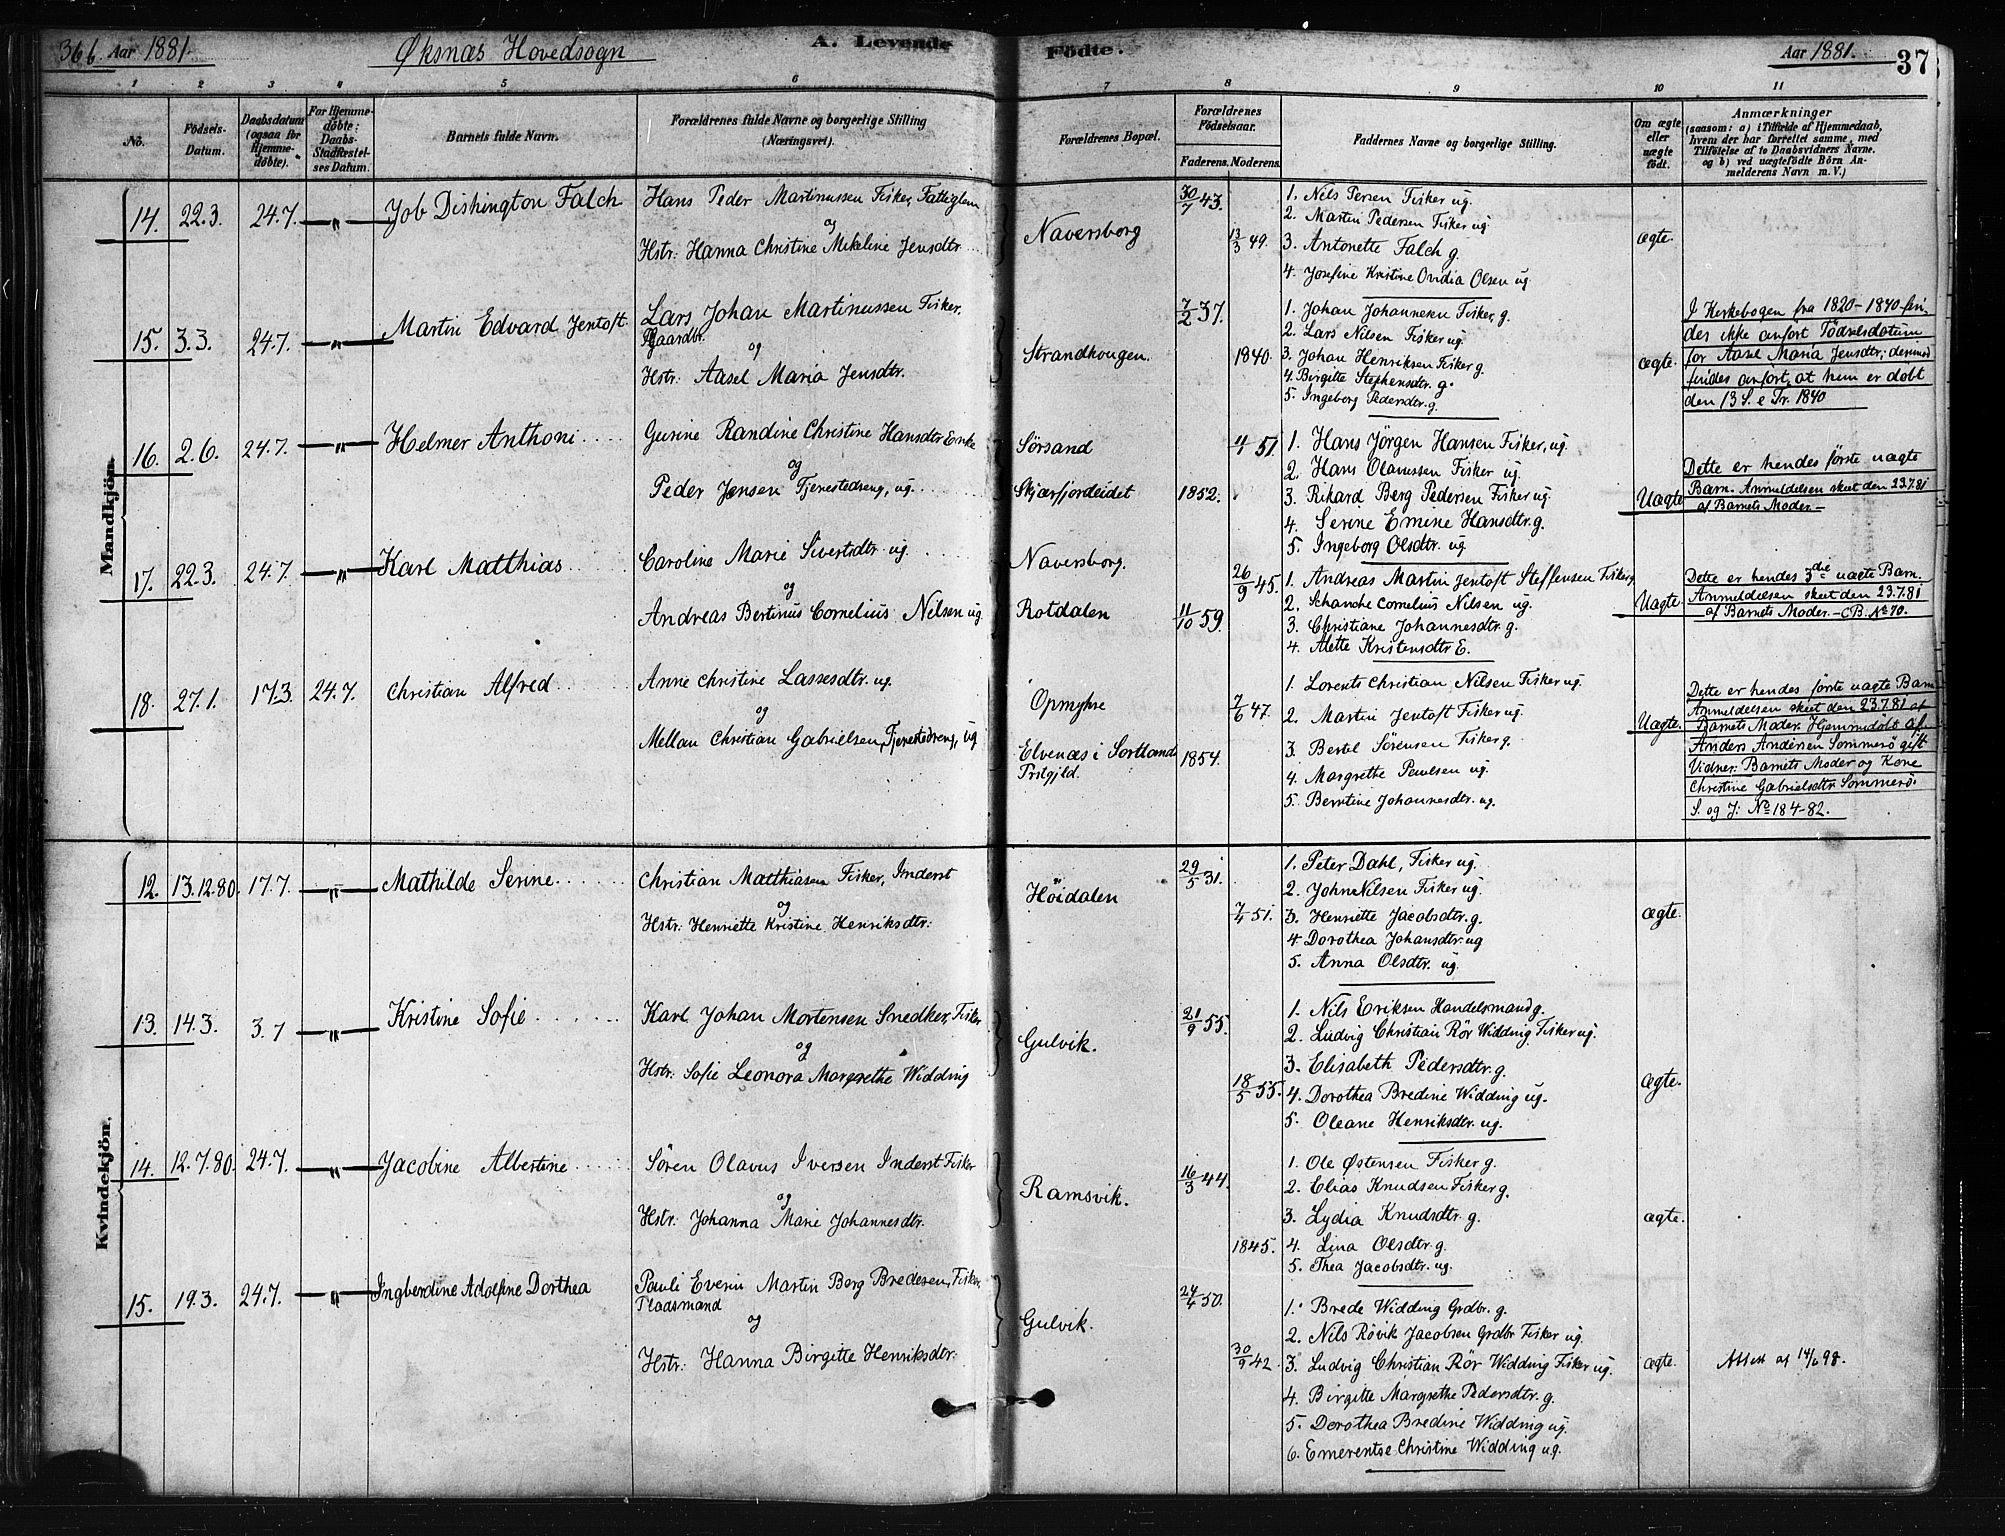 366 Aar 1881. Øksnæs Hovedsogn A. Levende Födte. Aar 1881. 37
1 2 3 4 5 6 7 8 9 10 11
No.
Födsels-Datum.
Daabsdatum (ogsaa för Hjemme-döbte).
For Hjemme-döbte: Daabs-Stadfæstel-ses Datum.
Barnets fulde Navn.
Forældrenes fulde Navne og borgerlige Stilling (Næringsvei).
Forældrenes Bopæl.
Forældrenes Födselsaar.
Faderens. Moderens.
Faddernes Navne og borgerlige Stilling.
Om ægte eller uægte födt.
Anmærkninger
(saasom: a) i Tilfælde af Hjemmedaab, hvem der har forrettet samme, med Tilföielse af to Daabsvidners Navne. og b) ved uægtefödte Börn An-melderens Navn m. V.)
Mandkjön.
14. 22.3. 24.7. — " — Job Dishington Falch
Hans Peder Martinussen Fisker, Fattiglem
og
Hstr: Hanna Christine Mikeline Jensdtr.
Naversborg
30/7 43.
13/3 49.
1. Nils Persen Fisker ug.
2. Martin Pedersen Fisker ug.
3. Antonette Falch g.
4. Josefine Kristine Ovidia Olsen ug.
ægte.
15. 3.3. 24.7. — " — Martin Edvard Jentoft
Lars Johan Martinussen Fisker,
Gaardbr.
og
Hstr: Aasel Maria Jensdtr.
Strandhougen.
7/2 37.
1840.
1. Johan Johannesen Fisker, g.
2. Lars Nilsen Fisker ug.
3. Johan Henriksen Fisker g.
4. Birgitte Stephensdtr. g.
5. Ingeborg Pedersdtr. g.
ægte.
I Kirkebogen fra 1820-1840 fin-
des ikke anført Fødselsdatum
for Aasel Maria Jensdtr; derimod
findes anført, at hun er døbt
den 13 S. e Tr. 1840
16. 2.6. 24.7. — " — Helmer Anthoni
Gurine Randine Christine Hansdtr Enke
og
Peder Jensen Tjenestedreng, ug.
Sørsand
Skjærfjordeidet
1852.
4/4 51.
1. Hans Jörgen Hansen Fisker, ug.
2. Hans Olavussen Fisker ug.
3. Rikard Berg Pedersen Fisker ug.
4. Serine Emine Hansdtr. g.
5. Ingeborg Olsdtr. ug.
Uægte
Dette er hendes første uægte
Barn. Anmeldelsen skeet den 23.7.81
af Barnets Moder.—
17. 22.3. 24.7. — " — Karl Matthias
Caroline Marie Sivertsdtr ug.
og
Andreas Bertinus Cornelius Nilsen ug.
Naversborg.
Rotdalen
11/10 59.
26/9 45.
1. Andreas Martin Jentoft Steffensen Fisker g
2. Schanche Cornelius Nilsen ug.
3. Christiane Johannesdtr. g.
4. Alette Kristensdtr E.
Uægte.
Dette er hendes 3die uægte Barn.
Anmeldelsen skeet den 23.7.81
af Barnets Moder.— CB. No 70.
18. 27.1. 17.3. 24.7. Christian Alfred
Anne Christine Lassesdtr. ug.
og
Mellan Christian Gabrielsen, Tjenestedreng, ug.
Opmyhre
Elvenæs i Sortland
Prstgjld.
1854.
7/6 47.
1. Lorents Christian Nilsen Fisker ug.
2. Martin Jentoft Fisker ug.
3. Bertel Sörensen Fisker g.
4. Margrethe Paulsen ug.
5. Berntine Johannesdtr. ug.
Uægte.
Dette er hendes første uægte Barn
Anmeldelsen skeet den 23.7.81 af
Barnets Moder. Hjemmedöbt af
Anders Andersen Sommerö gift
Vidner: Barnets Moder og Kone
Christine Gabrielsdtr. Sommerö.
S. og J: No 184-82.
Kvindekjön.
12. 13.12.80. 17.7. — " — Mathilde Serine
Christian Matthiasen Fisker, Inderst
og
Hstr: Henriette Kristine Henriksdtr:
Höidalen
29/5 31.
7/4 51.
1. Peter Dahl, Fisker ug.
2. John Nilsen Fisker ug.
3. Henriette Jacobsdtr. g.
4. Dorothea Johansdtr. ug
5. Anna Olsdtr. ug.
ægte.
13. 14.3. 3.7 — " — Kristine Sofie
Karl Johan Mortensen Snedker, Fisker
og
Hstr: Sofie Leonora Margrethe Widding
Gulvik.
21/9 55.
18/5 55.
1. Nils Eriksen Handelsmand g.
2. Ludvig Christian Rör Widding Fisker ug.
3. Elisabeth Pedersdtr. g.
4. Dorothea Bredine Widding ug.
5. Oleane Henriksdtr. ug.
ægte.
14. 12.7.80. 24.7. — " — Jacobine Albertine
Sören Olavus Iversen Inderst Fisker
og
Hstr: Johanna Marie Johannesdtr.
Ramsvik.
16/3 44.
1845.
1. Ole Østensen Fisker g.
2. Elias Knudsen Fisker g.
3. Lydia Knudsdtr. g.
4. Lina Olsdtr. g.
5. Thea Jacobsdtr. ug.
ægte.
15. 19.3. 24.7. — " — Ingberdine Adolfine Dorthea
Pauli Everin Martin Berg Bredesen, Fisker,
Pladsmand
og
Hstr: Hanna Birgitte Henriksdtr:
Gulvik.
24/4 50.
30/9 42.
1. Brede Widding Grdbr. g.
2. Nils Rövik Jacobsen Grdbr Fisker ug.
3. Ludvig Christian Rör Widding Fisker ug.
4. Birgitte Margrethe Pedersdtr. g.
5. Dorothea Bredine Widding ug.
6. Emerentse Christine Widding ug.
ægte.
Attest af 14/6 98.